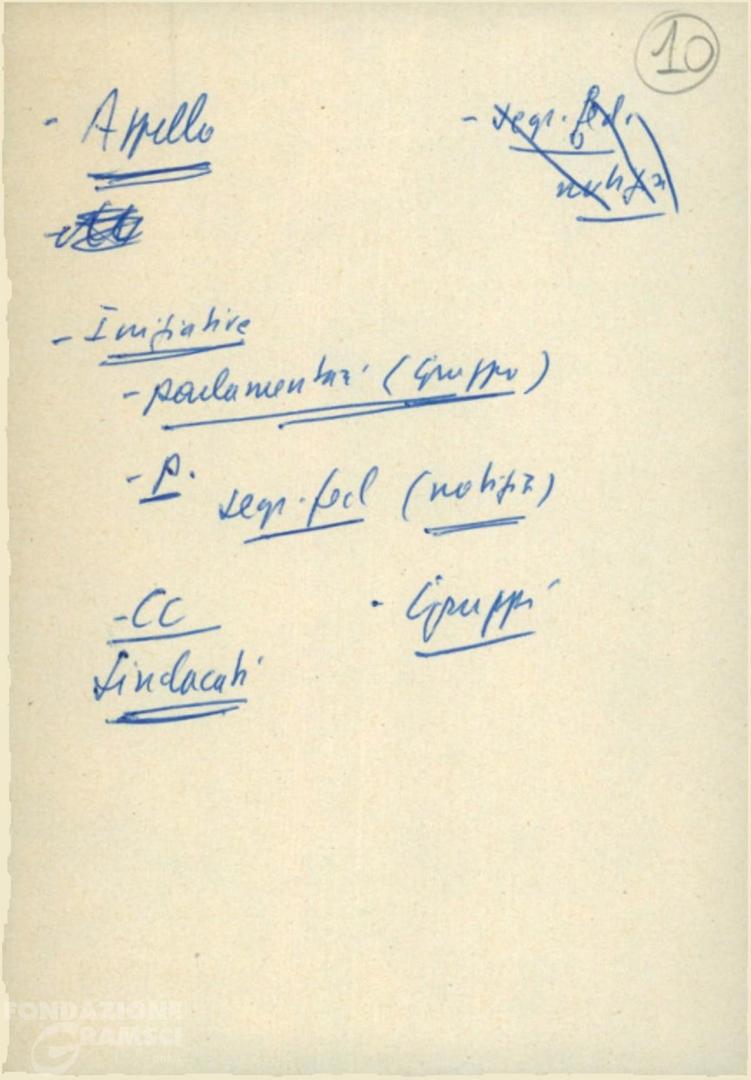 10
- Appello
- segr. fed.
notizie
- Iniziative
- parlamentari (Gruppo)
- P.
segr. fed (notizie)
- CC
- Gruppi
Sindacati
FONDAZIONE
GRAMSCI